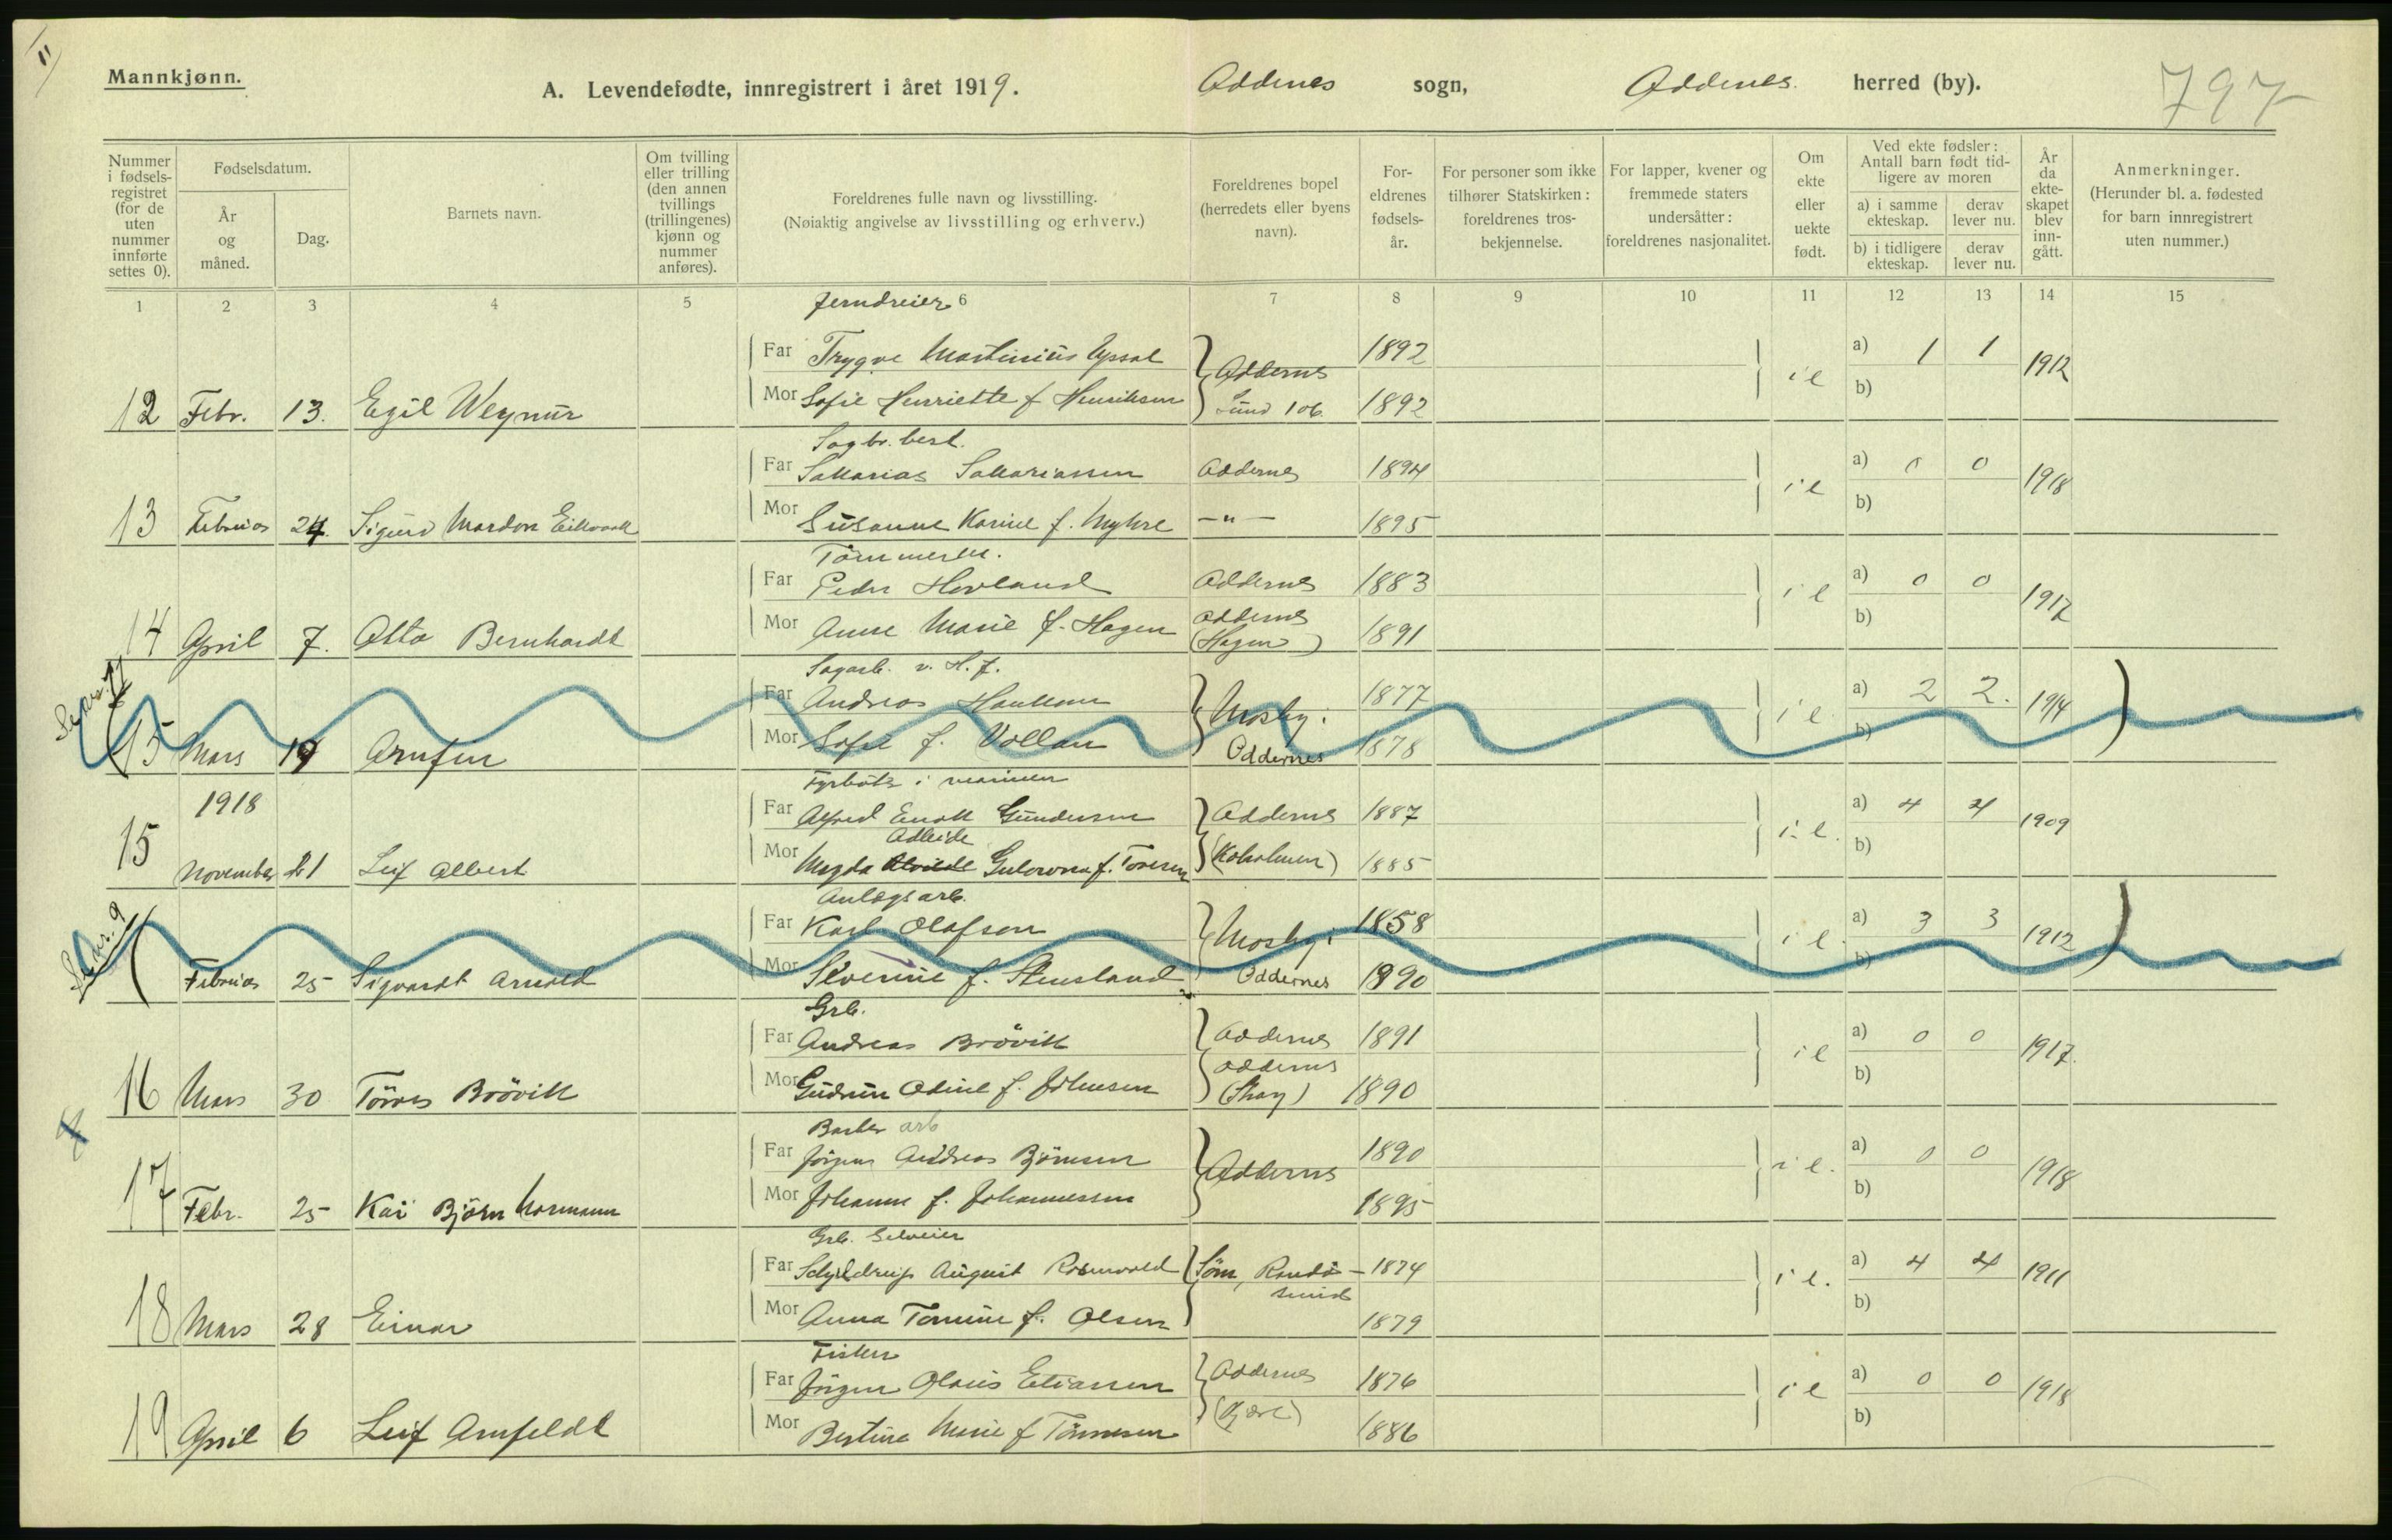 11
Mannkjønn.
A. Levendefødte, innregistrert i året 1919.
Oddernes sogn,
Oddernes herred (by).
797
Nummer i fødsels-registret (for de uten nummer innførte settes 0).
Fødselsdatum.
År og måned.
Dag.
Barnets navn.
Om tvilling eller trilling (den annen tvillings (trillingenes) kjønn og nummer anføres).
Foreldrenes fulle navn og livsstilling.
(Nøiaktig angivelse av livsstilling og erhverv.)
Foreldrenes bopel (herredets eller byens navn).
For-eldrenes fødsels-år.
For personer som ikke tilhører Statskirken: foreldrenes tros-bekjennelse.
For lapper, kvener og fremmede staters undersåtter: foreldrenes nasjonalitet.
Om ekte eller uekte født.
Ved ekte fødsler: Antall barn født tid-ligere av moren
a) i samme ekteskap.
derav lever nu.
b) i tidligere ekteskap.
derav lever nu.
År da ekte-skapet blev inn-gått.
Anmerkninger.
(Herunder bl. a. fødested for barn innregistrert uten nummer.)
1 2 3 4 5 6 7 8 9 10 11 12 13 14 15
Jerndreier
Far Trygve Martinius 1892 a) 1 1
12 Febr. 13. Egil Mor Sofie Henriette f Henriksen Oddernes Lund 106 1892 i e b) 1912
Sagbr. best.
Far Sakarias Sakariassen Oddernes 1894 a) 0 0
13 Februar 24. Sigurd Mardon Mor Susanne Karine f. Myhre —"— 1895 i e b) 1918
Tømmerm.
Far Peder Hovland Oddernes 1883 a) 0 0
14 April 7. Otto Bernhardt Mor Anne Marie f. Hagen Oddernes (Hagen) 1891 i e b) 1917
Sagarb. v. H. f.
Far Andreas 1877 a) 2 2.
15 Mars 19 Arnfin Mor Sofie f. Vollan Mosby i Oddernes 1878 i e b) 1914
Fyrbøter i marinen
1918
Far Alfred Enok Gundersen Oddernes 1887 a) 4 4
Adleide
15 November 21 Leif Albert Mor Magda Gulowna f. Toresen (Koholmen) 1885 i e. b) 1909
Se nr. 9
Anlegsarb.
Far Karl Olafsen 1858 a) 3 3
Februar 25 Sigvardt Arnold Mor Severine f. Stensland Mosby i Oddernes 1890 i e b) 1912
Grb.
Far Andreas Brøvik Oddernes 1891 a) 0 0
16 Mars 30 Tørres Brøvik Mor Gudrun Odine f. Johnsen Oddernes 1890 i e b) 1917.
Barber arb
Far Jørgen Andreas Bjørnsen 1890 a) 0 0
17 Febr. 25 Kai Bjørn Normann Mor Johanne f. Johannessen Oddernes 1895 i e. b) 1918
Grb. Selveier
Far August Rosenvold Søm, Randø- sund 1874 a) 4 4
18 Mars 28 Einar Mor Anna Tomine f. Olsen 1879 i e. b) 1911
Fisker
Far Jørgen Olaus Eliassen Oddernes 1876 a) 0 0
19 April 6 Leif Arnfeldt Mor Bertine Marie f Tønnesen 1886 i e b) 1918